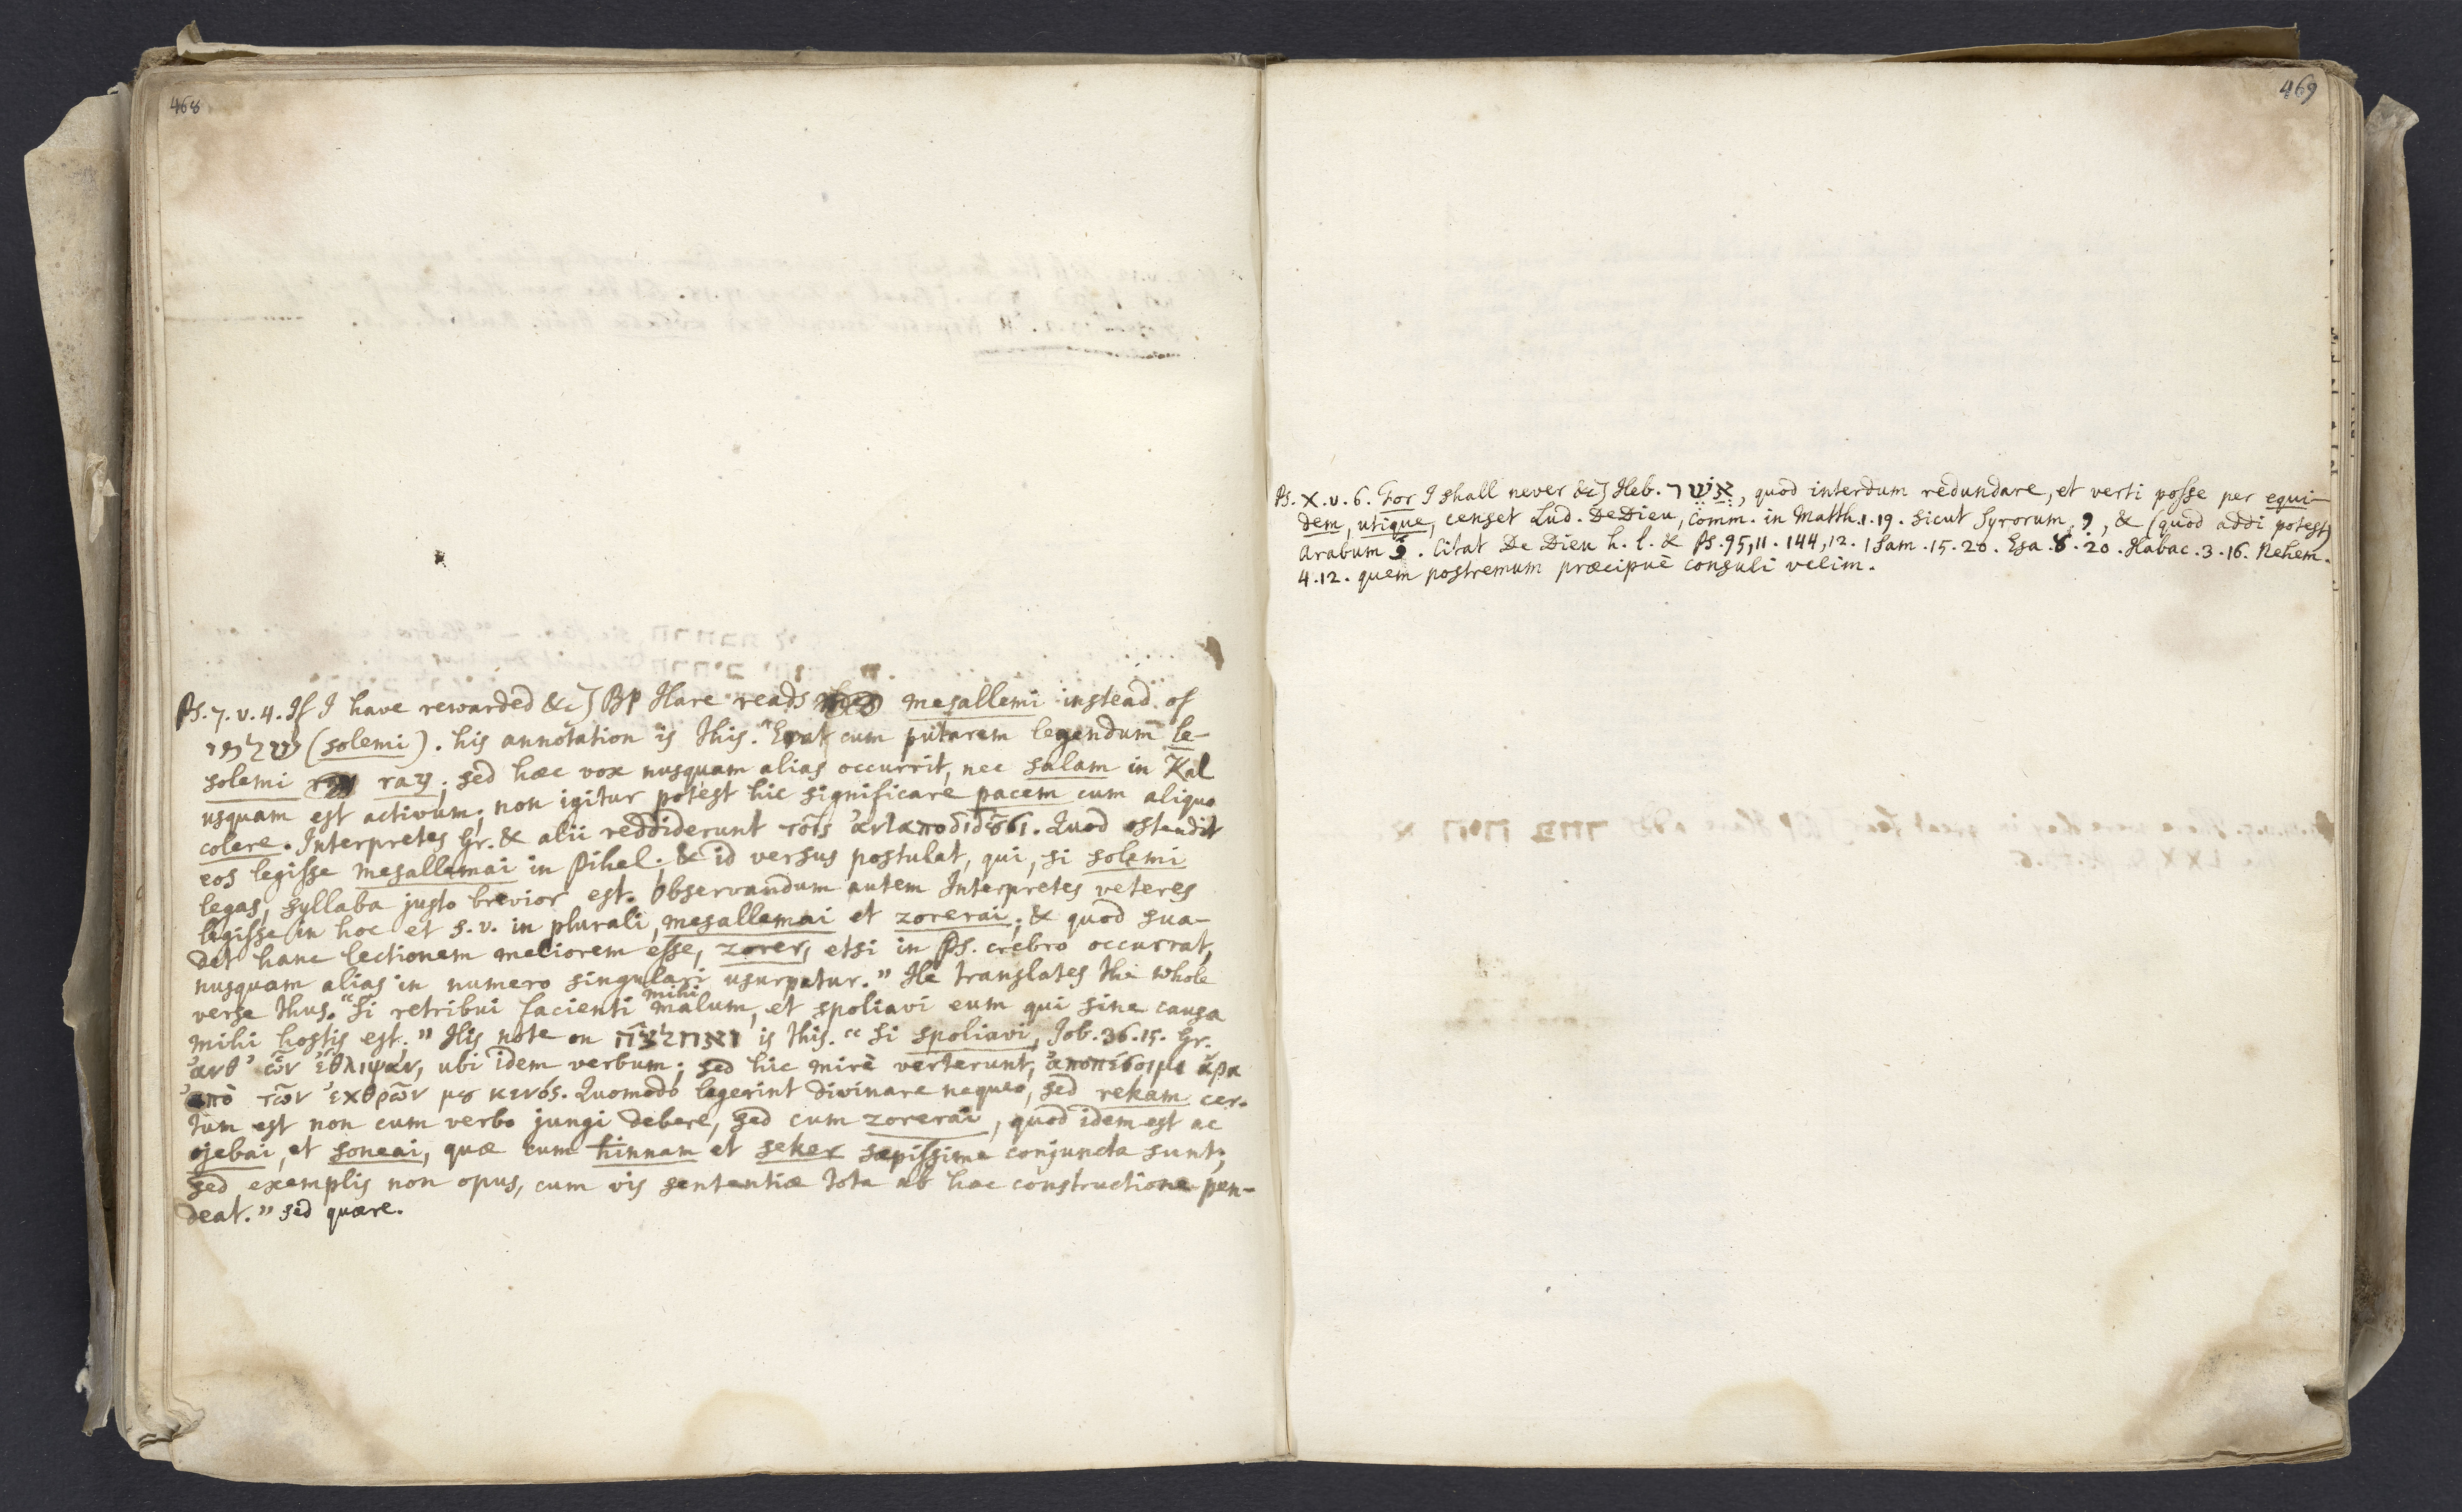 468
Ps. 7. v. 4. If I have rewarded &c] Bp Hare reads mesallemi instead of
שולמי (solemi). his annotation is this. "Erat cum putarem legendum le-
solemi ray; sed hæc vox nusquam alias occurrit, nec salam in Kal
usquam est activum; non igitur potest hic significare pacem cum aliquo
colere. Interpretes Gr. & alii reddiderunt τοῖς ἀνταποδιδȣ̃σι. Quod ostendit
eos legisse mesallemai in Pihel. & id versus postulat, qui, si solemi
legas, syllaba justo brevior est. Observandum autem Interpretes veteres
legisse in hoc et s. v. in plurali, mesallemai et zorerai; & quod sua-
det hanc lectionem meliorem esse, zorer, etsi in Ps. crebro occurrat,
nusquam alias in numero singulari usurpatur." He translates the whole
verse thus. "Si retribui facienti mihi malum, et spoliavi eum qui sine causa
mihi hostis est." His note on ואחלצה is this. "Si spoliavi, Job. 36. 15. Gr.
ἀνθ' ὧν ἔθλιψαν, ubi idem verbum; sed hic mirè verterunt, ἀποπέσοιμι ἄρα
ἀπὸ τῶν ἐχθρῶν μȣ κενός. Quomodo legerint divinare nequeo, sed rekam cer-
tum est non cum verbo jungi debere, sed cum zorerai, quod idem est ac
ojebai, et soneai, quæ cum hinnam et seker sæpissime conjuncta sunt;
sed exemplis non opus, cum vis sententiæ tota ab hac constructione pen-
deat." sed quære.
469
Ps. X. v. 6. For I shall never &c] Heb. אֲשֶׁר, quod interdum redundare, et verti posse per equi-
dem, utique, censet Lud. De Dieu, Comm. in Matth. 1. 19. sicut Syrorum, & (quod addi potest)
Arabum. Citat De Dieu h. l. & Ps. 95, 11. 144, 12. 1 Sam. 15. 20. Esa. 8. 20. Habac. 3. 16. Nehem.
4. 12. quem postremum præcipuè consuli velim.